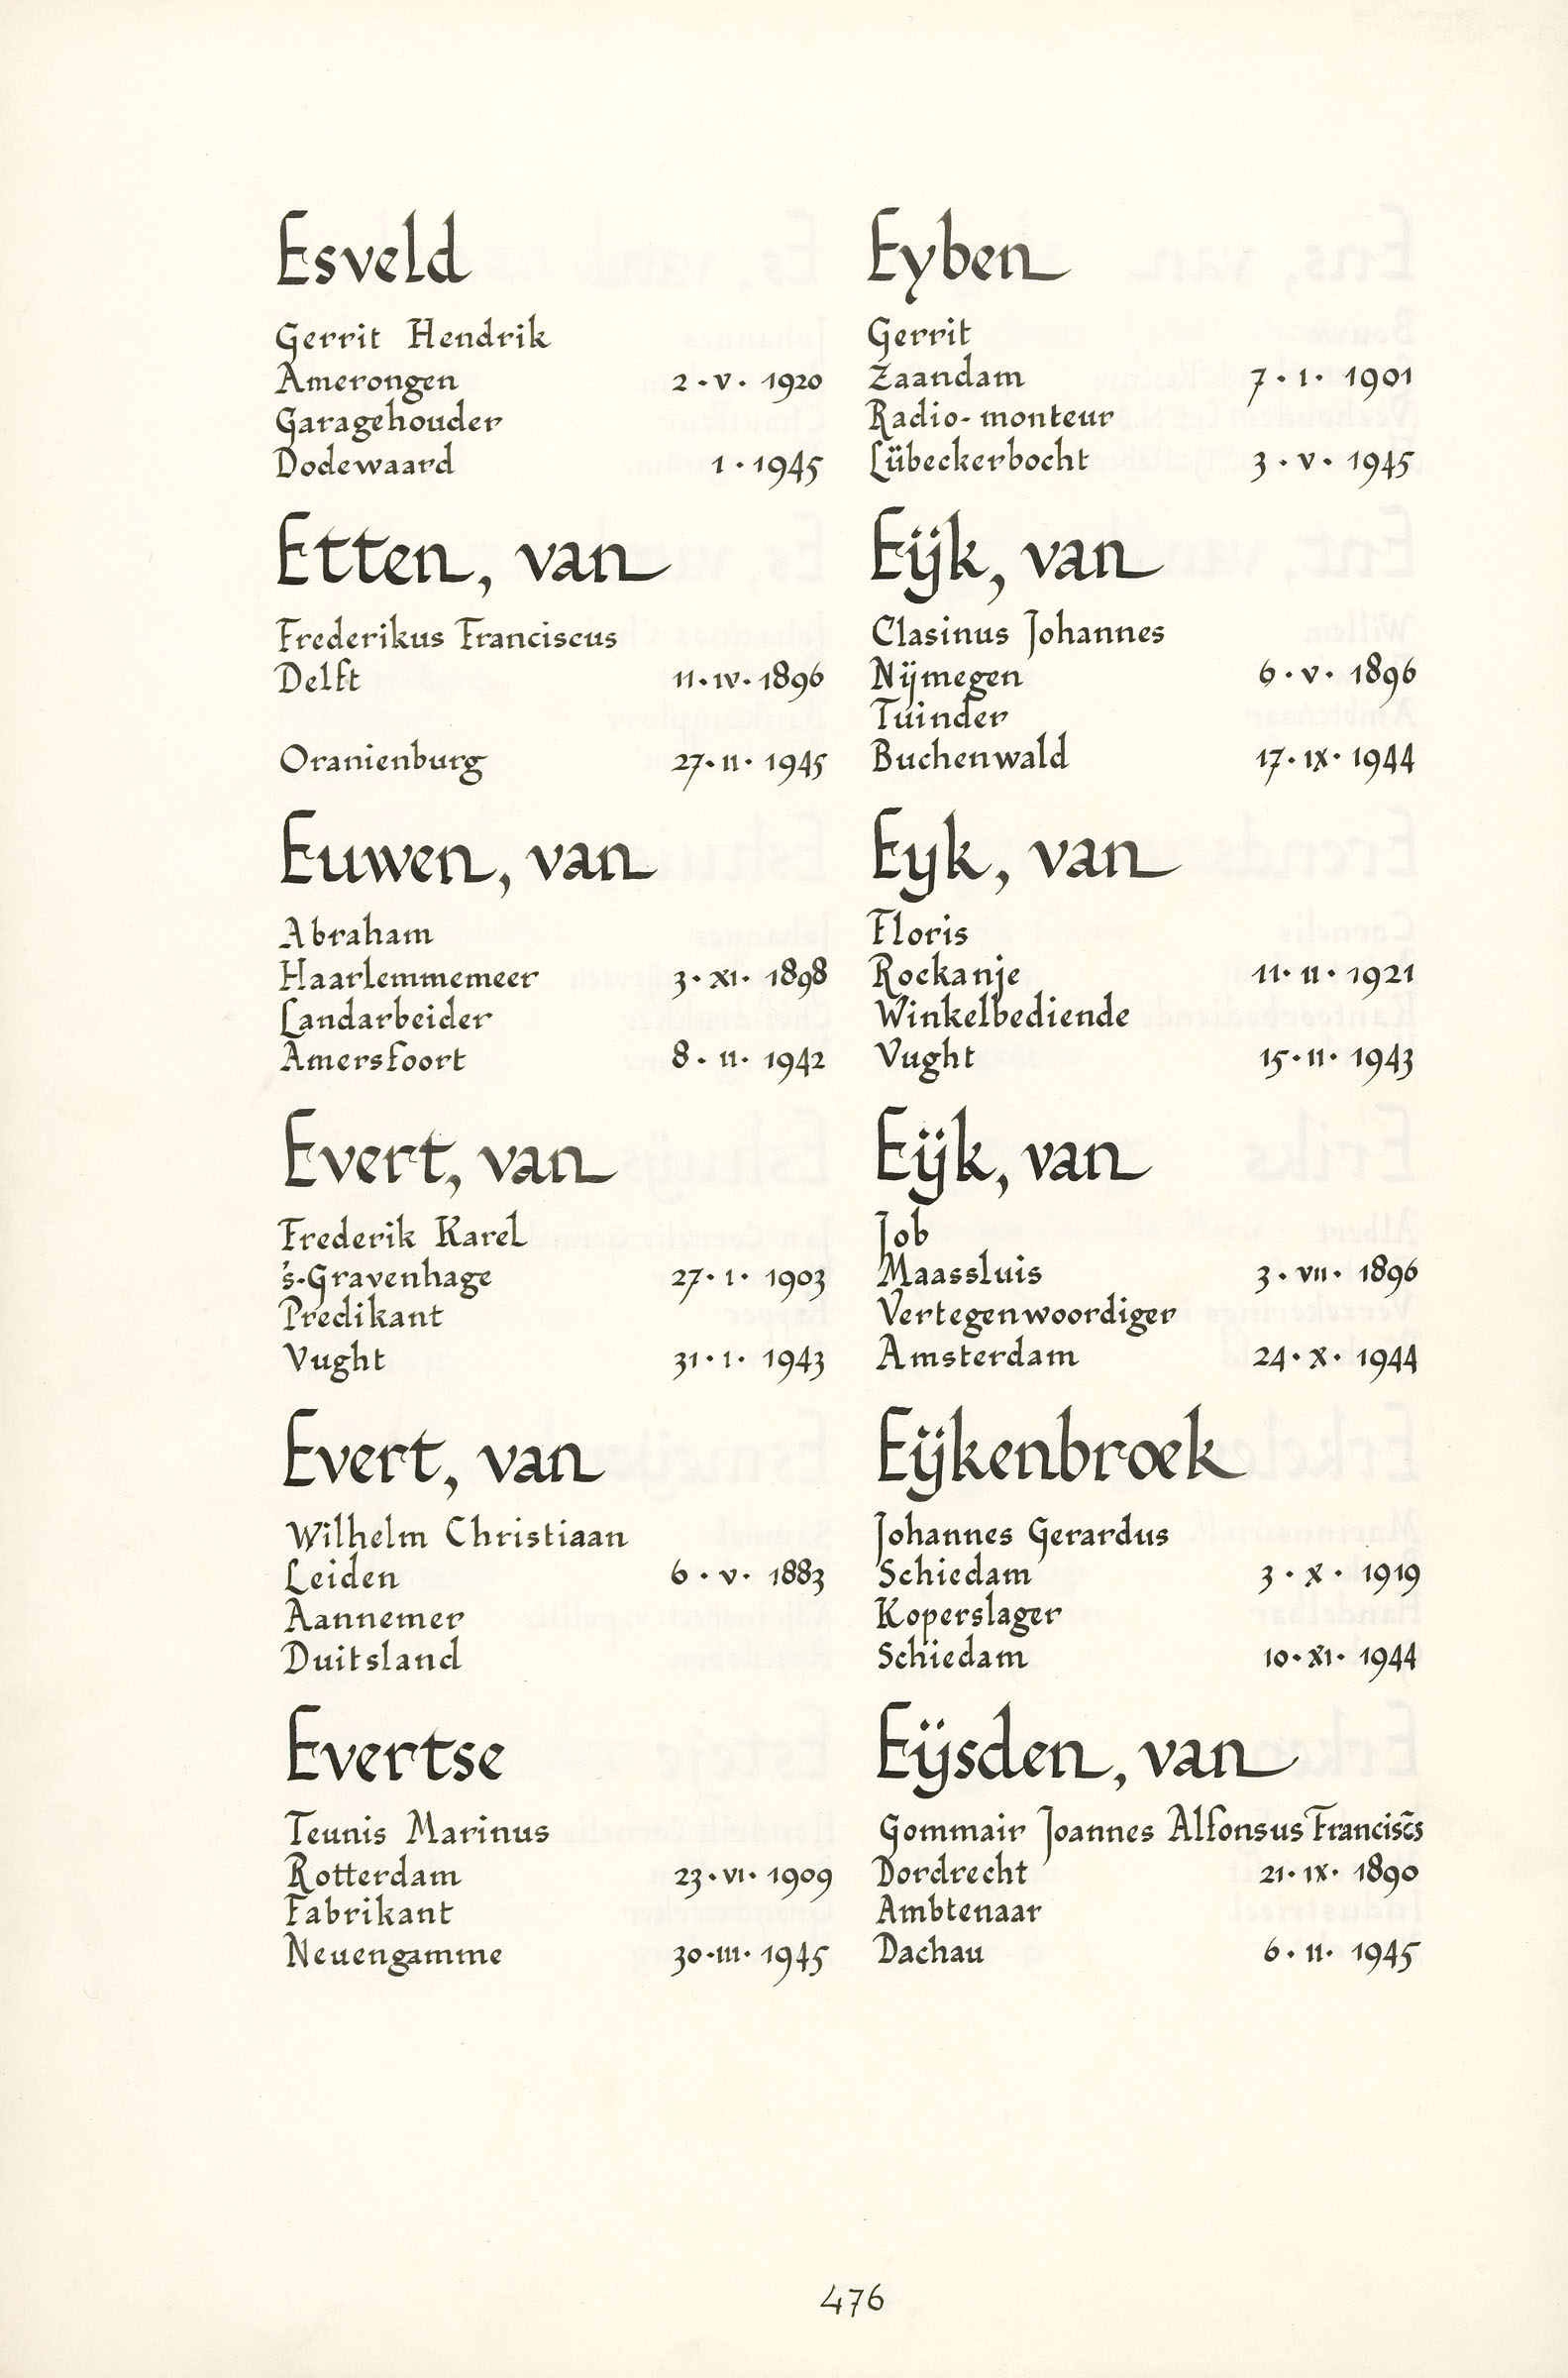 Esveld
Gerrit Hendrik
Amerongen 2 · V · 1920
Garagehouder
Dodewaard 1 · 1945
Etten, van
Frederikus Franciscus
Delft 11 · IV · 1896
Oranienburg 27 · II · 1945
Euwen, van
Abraham
Haarlemmemeer 3 · XI · 1898
Landarbeider
Amersfoort 8 · II · 1942
Evert, van
Frederik Karel
's-Gravenhage 27 · I · 1903
Predikant
Vught 31 · I · 1943
Evert, van
Wilhelm Christiaan
Leiden 6 · V · 1883
Aannemer
Duitsland
Evertse
Teunis Marinus
Rotterdam 23 · VI · 1909
Fabrikant
Neuengamme 30 · III · 1945
Eyben
Gerrit
Zaandam 7 · I · 1901
Radio-monteur
Lübeckerbocht 3 · V · 1945
Eijk, van
Clasinus Johannes
Nijmegen 6 · V · 1896
Tuinder
Buchenwald 17 · IX · 1944
Eyk, van
Floris
Rockanje 11 · II · 1921
Winkelbediende
Vught 15 · II · 1943
Eijk, van
Job
Maassluis 3 · VII · 1896
Vertegenwoordiger
Amsterdam 24 · X · 1944
Eijkenbroek
Johannes Gerardus
Schiedam 3 · X · 1919
Koperslager
Schiedam 10 · XI · 1944
Eijsden, van
Gommair Joannes Alfonsus Francisc̄s
Dordrecht 21 · IX · 1890
Ambtenaar
Dachau 6 · II · 1945
476